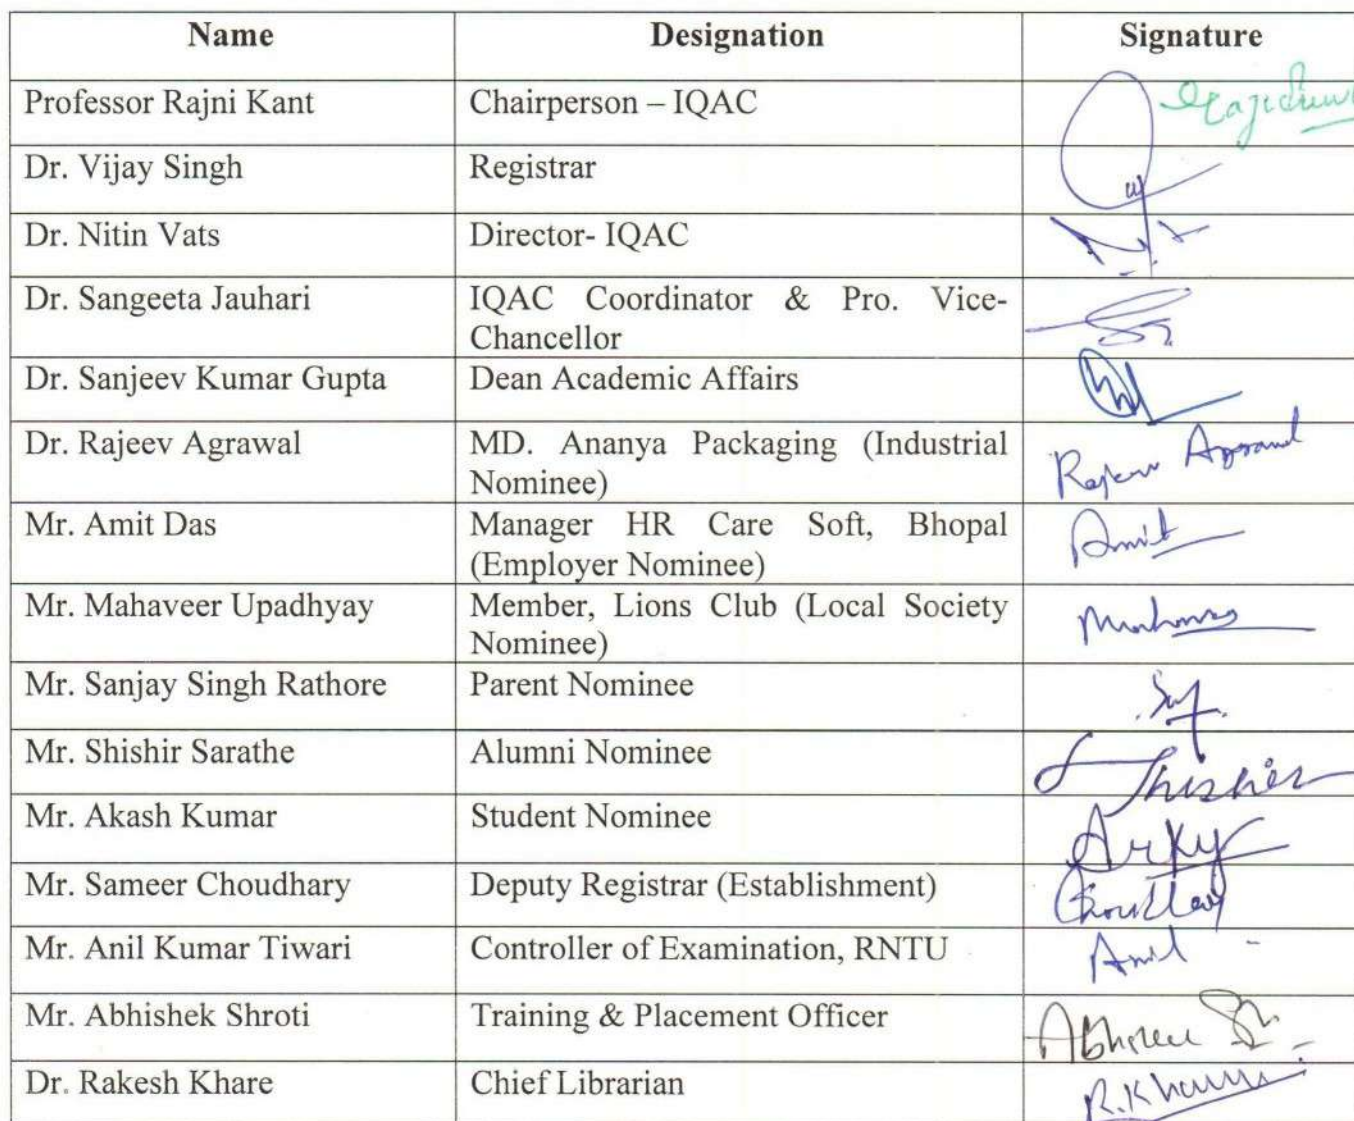 Name Designation Signature
Professor Rajni Kant Chairperson – IQAC
Dr. Vijay Singh Registrar
Dr. Nitin Vats Director- IQAC
Dr. Sangeeta Jauhari IQAC Coordinator & Pro. Vice-
Chancellor
Dr. Sanjeev Kumar Gupta Dean Academic Affairs
Dr. Rajeev Agrawal MD. Ananya Packaging (Industrial
Nominee)
Mr. Amit Das Manager HR Care Soft, Bhopal Amit
(Employer Nominee)
Mr. Mahaveer Upadhyay Member, Lions Club (Local Society
Nominee)
Mr. Sanjay Singh Rathore Parent Nominee
Mr. Shishir Sarathe Alumni Nominee
Mr. Akash Kumar Student Nominee
Mr. Sameer Choudhary Deputy Registrar (Establishment)
Mr. Anil Kumar Tiwari Controller of Examination, RNTU Anil
Mr. Abhishek Shroti Training & Placement Officer
Dr. Rakesh Khare Chief Librarian